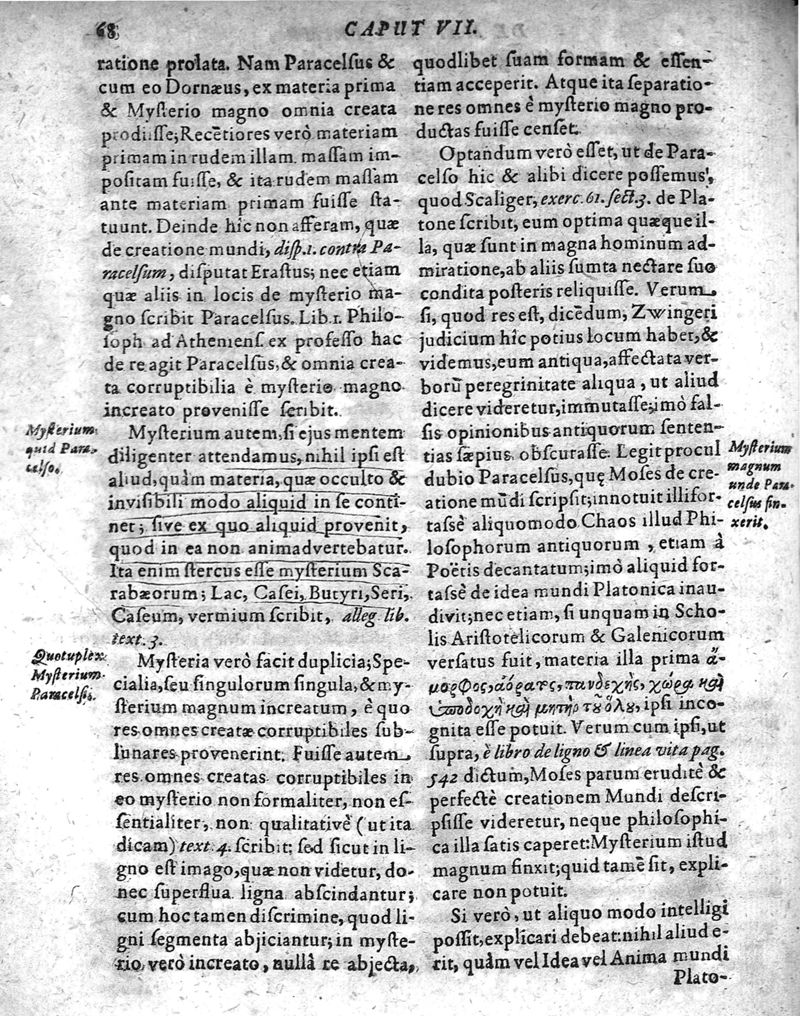 68
CAPUT VII.
ratione prolata. Nam Paracelſus &
cum eo Dornæus, ex materia prima
& Myſterio magno omnia creata
prodiiſſe; Recētiores verò materiam
primam in rudem illam maſſam im-
poſitam fuiſſe, & ita rudem maſſam
ante materiam primam fuiſſe ſta-
tuunt. Deinde hîc non afferam, quæ
de creatione mundi, diſp. 1. contra Pa-
racelſum, diſputat Eraſtus; nec etiam
quæ aliis in locis de myſterio ma-
gno ſcribit Paracelſus. Lib. 1. Philo-
ſoph ad Athenienſ ex profeſſo hac
de re agit Paracelſus, & omnia crea-
ta corruptibilia è myſterio magno
increato proveniſſe ſcribit.
Myſterium
quid Para-
celſo.
Myſterium autem, ſi ejus mentem
diligenter attendamus, nihil ipſi eſt
aliud, quàm materia, quæ occulto &
inviſibili modo aliquid in ſe conti-
net; ſive ex quo aliquid provenit,
quod in ea non animadvertebatur.
Ita enim ſtercus eſſe myſterium Sca-
rabæorum; Lac, Caſei, Butyri, Seri,
Caſeum, vermium ſcribit, alleg. lib.
text. 3.
Quotuplex
Myſterium
Paracelſi.
Myſteria verò facit duplicia; Spe-
cialia, ſeu ſingulorum ſingula, & my-
ſterium magnum increatum, è quo
res omnes creatæ corruptibiles ſub-
lunares provenerint. Fuiſſe autem
res omnes creatas corruptibiles in
eo myſterio non formaliter, non eſ-
ſentialiter, non qualitativè (ut ita
dicam) text. 4. ſcribit; ſed ſicut in li-
gno eſt imago, quæ non videtur, do-
nec ſuperflua ligna abſcindantur;
cum hoc tamen diſcrimine, quod li-
gni ſegmenta abjiciantur; in myſte-
rio verò increato, nullâ re abjecta,
quodlibet ſuam formam & eſſen-
tiam acceperit. Atque ita ſeparatio-
ne res omnes è myſterio magno pro-
ductas fuiſſe cenſet.
Optandum verò eſſet, ut de Para-
celſo hîc & alibi dicere poſſemus,
quod Scaliger, exerc. 61. ſect. 3. de Pla-
tone ſcribit, eum optima quæque il-
la, quæ ſunt in magna hominum ad-
miratione, ab aliis ſumta nectare ſuo
condita poſteris reliquiſſe. Verum
ſi, quod res eſt, dicēdum, Zwingeri
judicium hîc potius locum habet, &
videmus, eum antiqua, affectata ver-
borū peregrinitate aliqua, ut aliud
dicere videretur, immutaſſe; imò fal-
ſis opinionibus antiquorum ſenten-
tias ſæpius obſcuraſſe. Legit procul
Myſterium
magnum
unde Para-
celſus fin-
xerit.
dubio Paracelſus, quę Moſes de cre-
atione mūdi ſcripſit; innotuit illi for-
taſsè aliquomodo Chaos illud Phi-
loſophorum antiquorum, etiam à
Poëtis decantatum; imò aliquid for-
taſsè de idea mundi Platonica inau-
divit; nec etiam, ſi unquam in Scho-
lis Ariſtotelicorum & Galenicorum
verſatus fuit, materia illa prima ἄ-
μορφος, ἀόρατος, πανδεχὴς, χώρα καὶ
ὑποδοχὴ καὶ μητὴρ τοῦ ὅλου, ipſi inco-
gnita eſſe potuit. Verum cum ipſi, ut
ſupra, è libro de ligno & linea vitæ pag.
542 dictum, Moſes parum eruditè &
perfectè creationem Mundi deſcri-
pſiſſe videretur, neque philoſophi-
ca illa ſatis caperet: Myſterium iſtud
magnum finxit; quid tamē ſit, expli-
care non potuit.
Si verò, ut aliquo modo intelligi
poſſit, explicari debeat: nihil aliud e-
rit, quàm vel Idea vel Anima mundi
Plato-